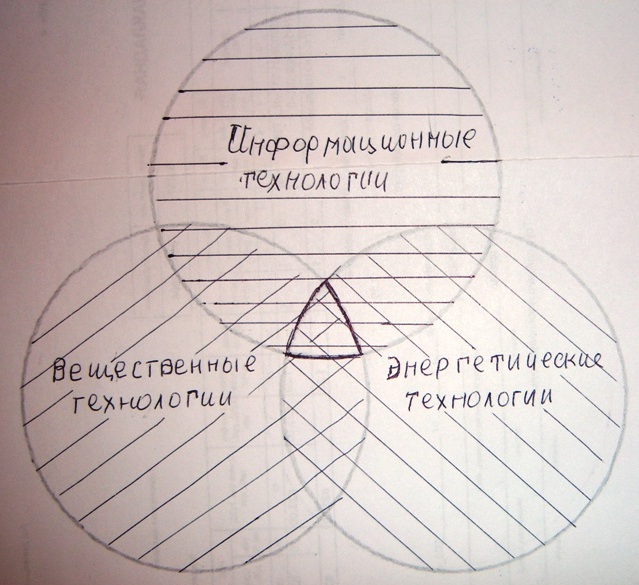 Информационные
технологии
Вещественные
технологии
Энергетические
технологии